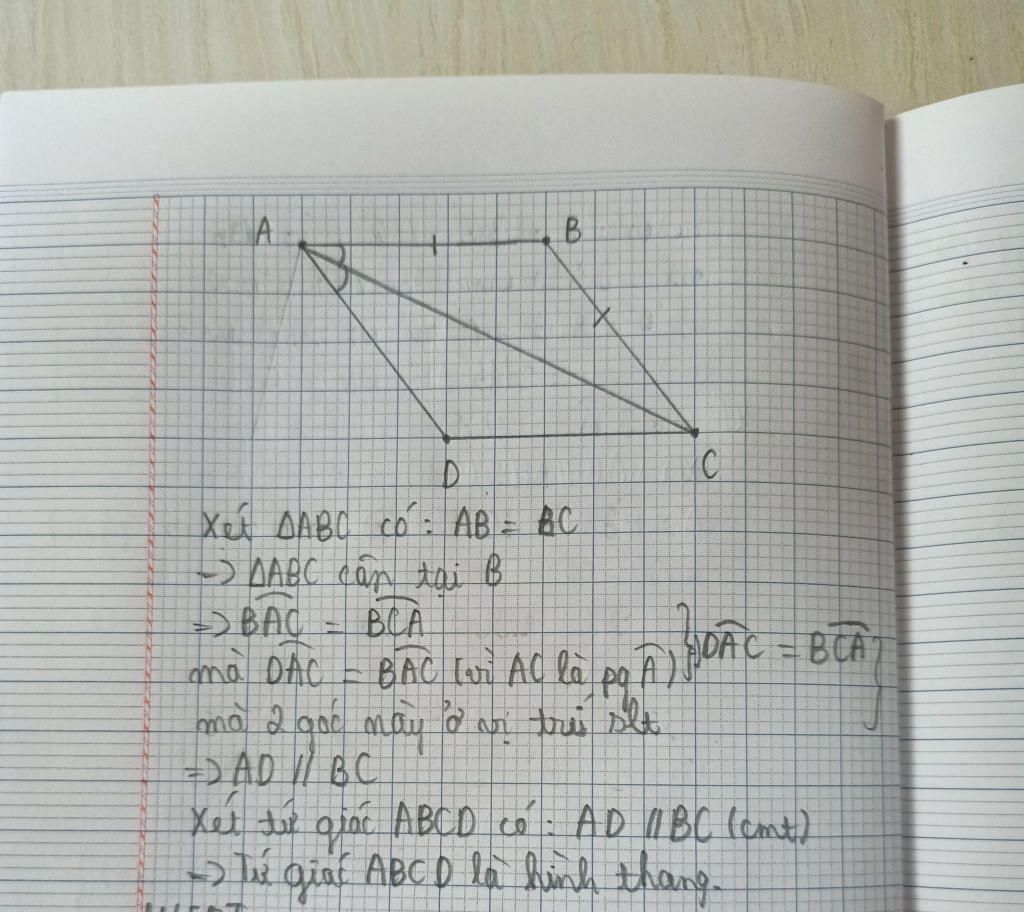 A
B
D
C
Xét ΔABC có: AB = BC
=> ΔABC cân tại B
=> BAC = BCA
mà DAC = BAC (vì AC là pg A) } => DAC = BCA }
mà 2 góc này ở vị trí slt
=> AD // BC
Xét tứ giác ABCD có: AD // BC (cmt)
=> Tứ giác ABCD là hình thang.